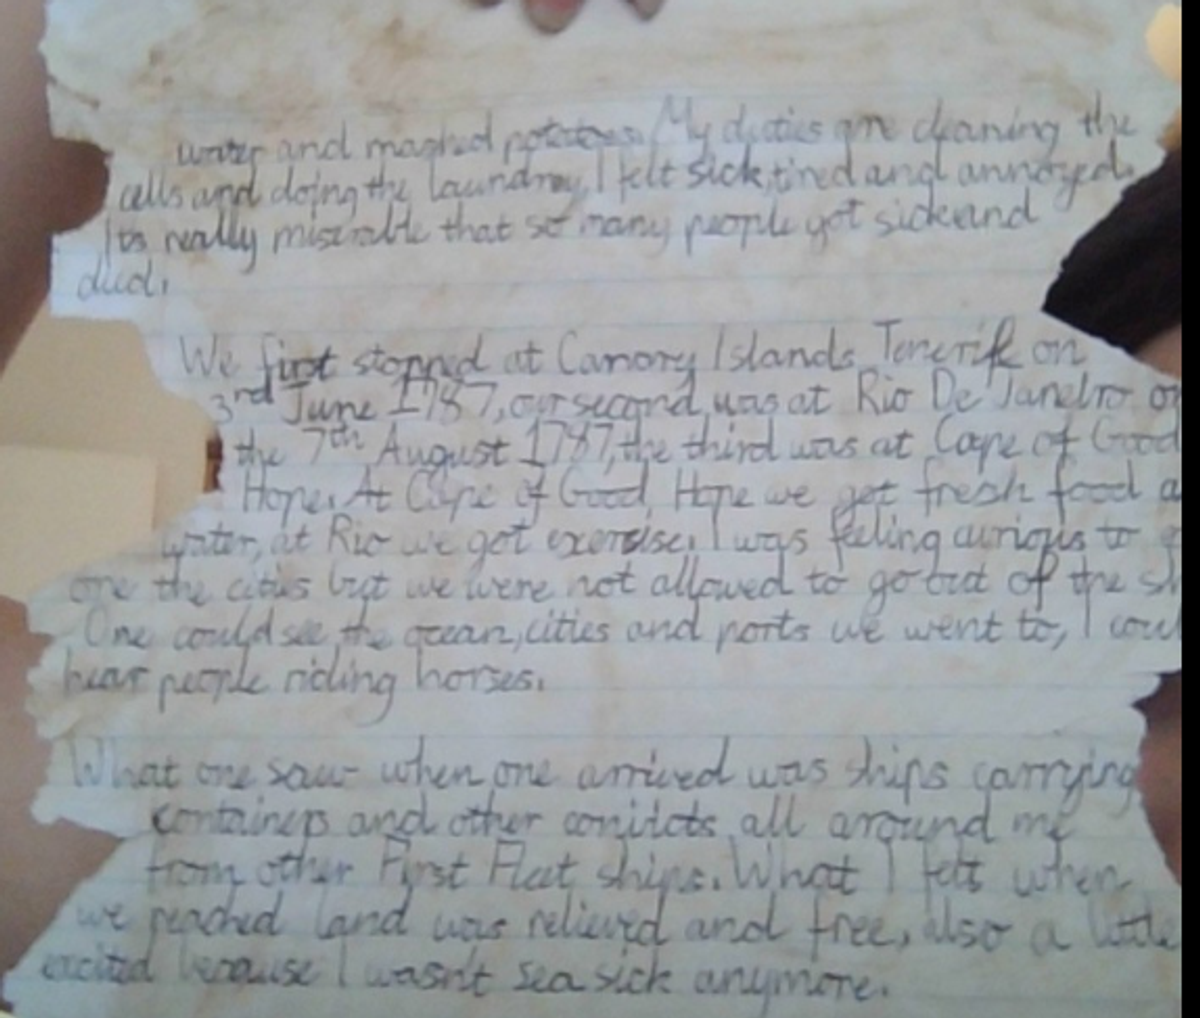 water and mashed potatoes. My duties are cleaning the
cells and doing the laundry, I felt sick, tired and annoyed.
Its really miserable that so many people got sick and
died.
We first stopped at Canary Islands, Tenerife on
3rd June 1787, our second was at Rio De Janeiro on
the 7th August 1787, the third was at Cape of Good
Hope. At Cape of Good Hope we get fresh food
water, at Rio we got exercise. I was feeling curious to
the cities but we were not allowed to go out of the
One could see the ocean, cities and ports we went to, I
hear people riding horses.
What one saw when one arrived was ships carrying
containers and other convicts all around me
from other First Fleet ships. What I felt when
we reached land was relieved and free, also a little
excited because I wasn't sea sick anymore.